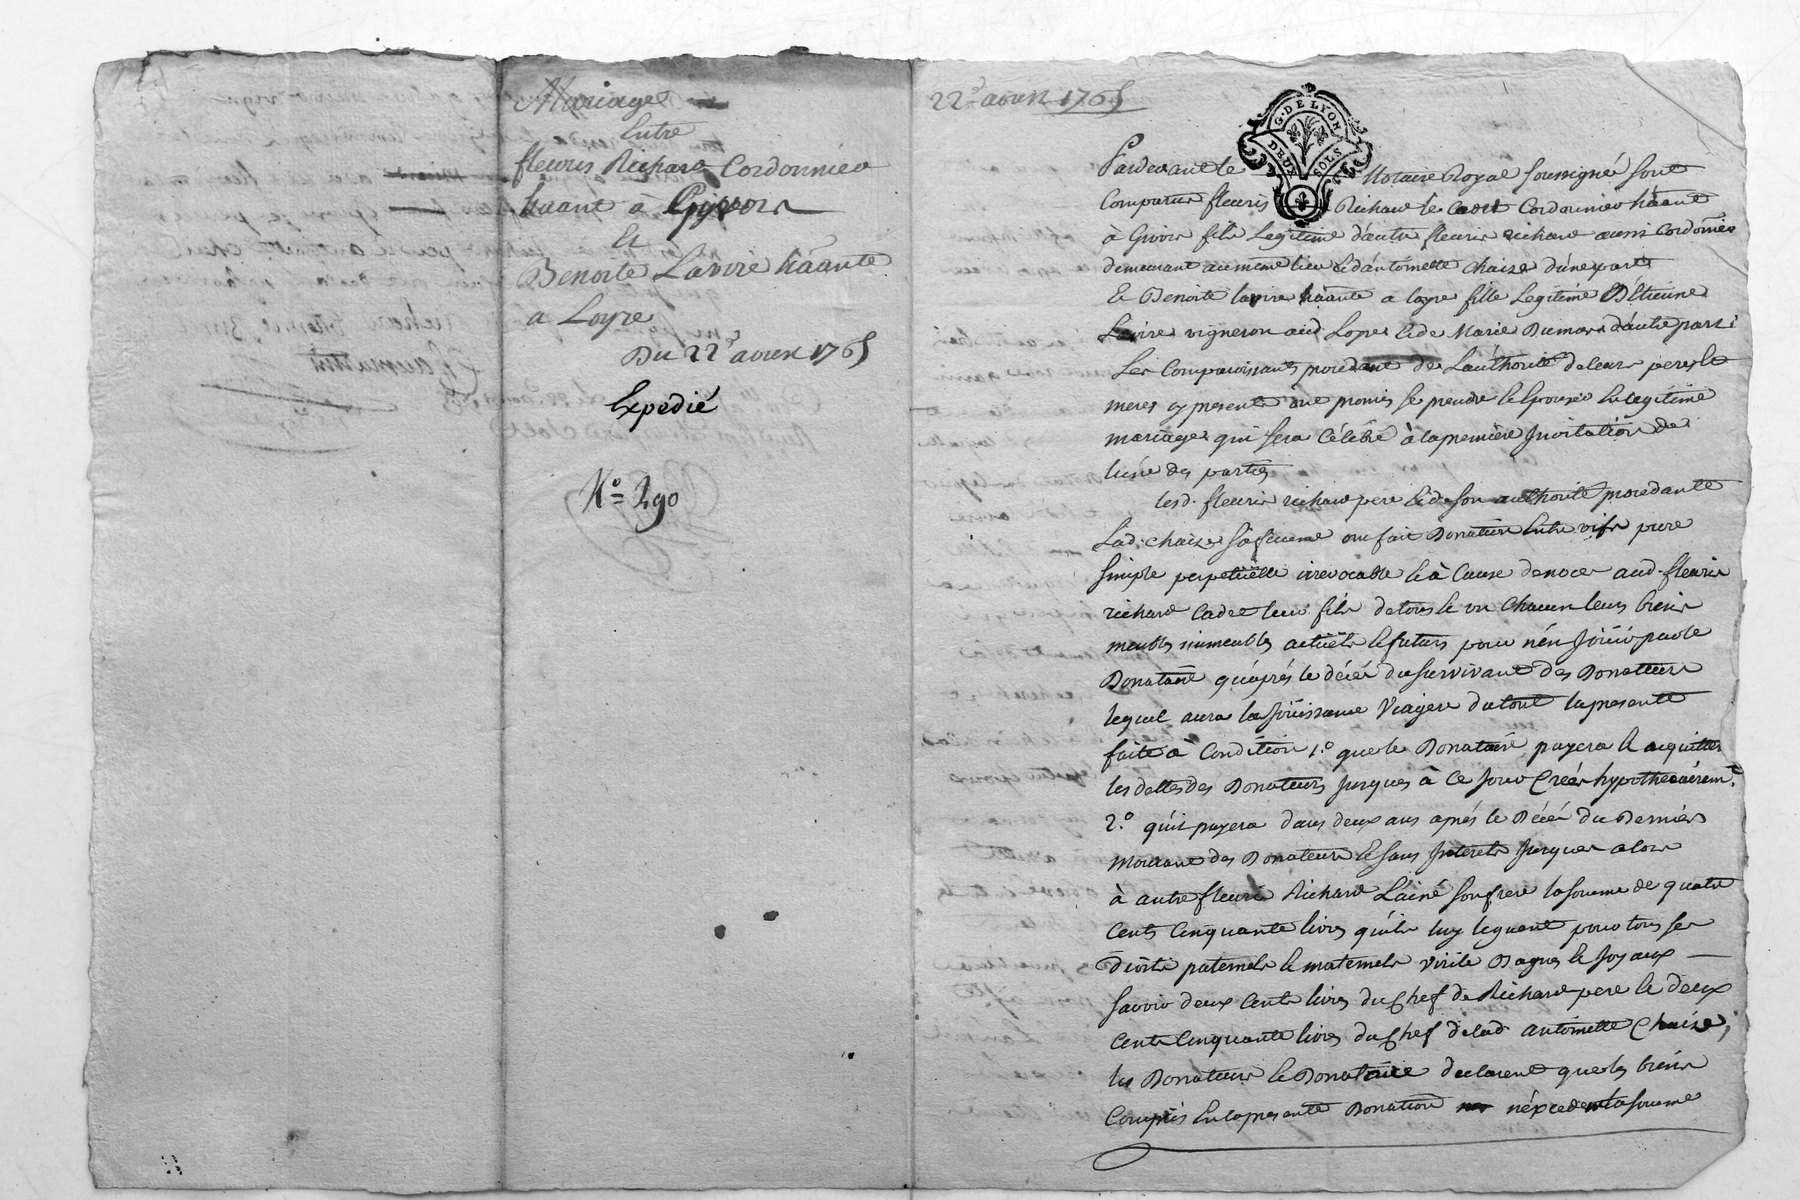 Mariage
Entre
fleuris Richard Cordonnier
hâant a Givors
Et
Benoite Lavire hâante
a Loyre
Du 22e avril 1765
Expedié
N.o 290
22e avril 1765
G. DE LYON
DEUX SOLS
Pardevant le Notaire Royal soussigné sont
Comparus fleuris Richard le Cadet Cordonnier hâant
à Givors fils Legitime d'autre fleuris richard aussi Cordonnier
demeurant au meme lieu & d'antoinette Chaize d'une part
Et Benoite lavire hâante a loyre fille Legitime D'Etienne
Lavire vigneron aud. Loyre & de Marie Dumas d'autre part
Les Comparoissants procedant de L'authorité de leurs peres &
meres cy presents ont promis se prendre & Epouser En legitime
mariage qui sera Célébré à la premiere Invitation de
lune des parties
led. fleuris richard pere & de son authorité procedante
Lad. chaize sa femme ont fait Donation Entre vifs pure
simple perpetuelle irrevocable & à Cause de noces aud. fleuris
richard Cadet leur fils de tous & un chacun leurs biens
meubles immeubles actuels & futurs pour n'en Joüir par le
Donataire qu'après le décés du survivant des Donateurs
lequel aura la Joüissance viagere du tout la presente
faite à Condition 1.o que le Donataire payera & acquittera
les dettes des Donateurs Jusques à ce Jour Créés hypothecairemt.
2.o qu'il payera dans deux ans après le Décés du Dernier
mourant des Donateurs & sans Interets Jusques alors
à autre fleuris Richard L'ainé son frere la somme de quatre
Cents Cinquante livres qu'ils luy leguent pour tous ses
droits paternels & maternels virile Bagues & Joyaux
savoir deux Cents livres du Chef de Richard pere & deux
Cents Cinquante livres du Chef de lad antoinette Chaize;
les Donateurs & Donataire declarent que les biens
Compris En la presente Donation n'éxcedent la somme